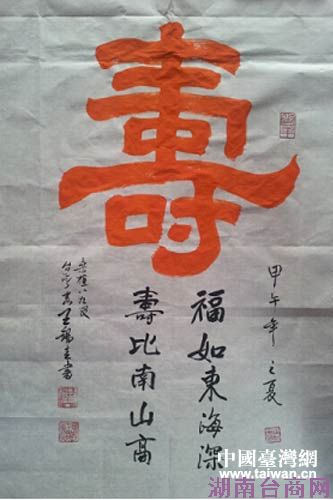 壽
甲午年之夏
福如東海深
壽比南山高
中國臺灣網
www.taiwan.cn
湖南台商网